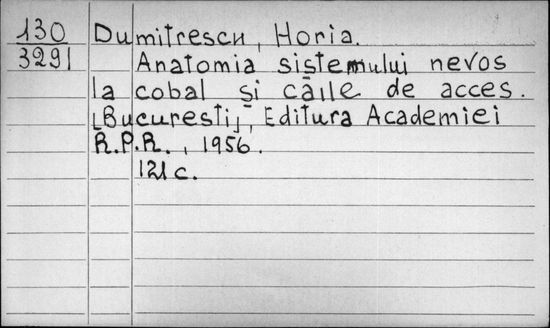 130 Dumitrescu, Horia.
3291 Anatomia sistemului nevos
la cobal și căile de acces.
[București], Editura Academiei
R.P.R., 1956.
121 c.